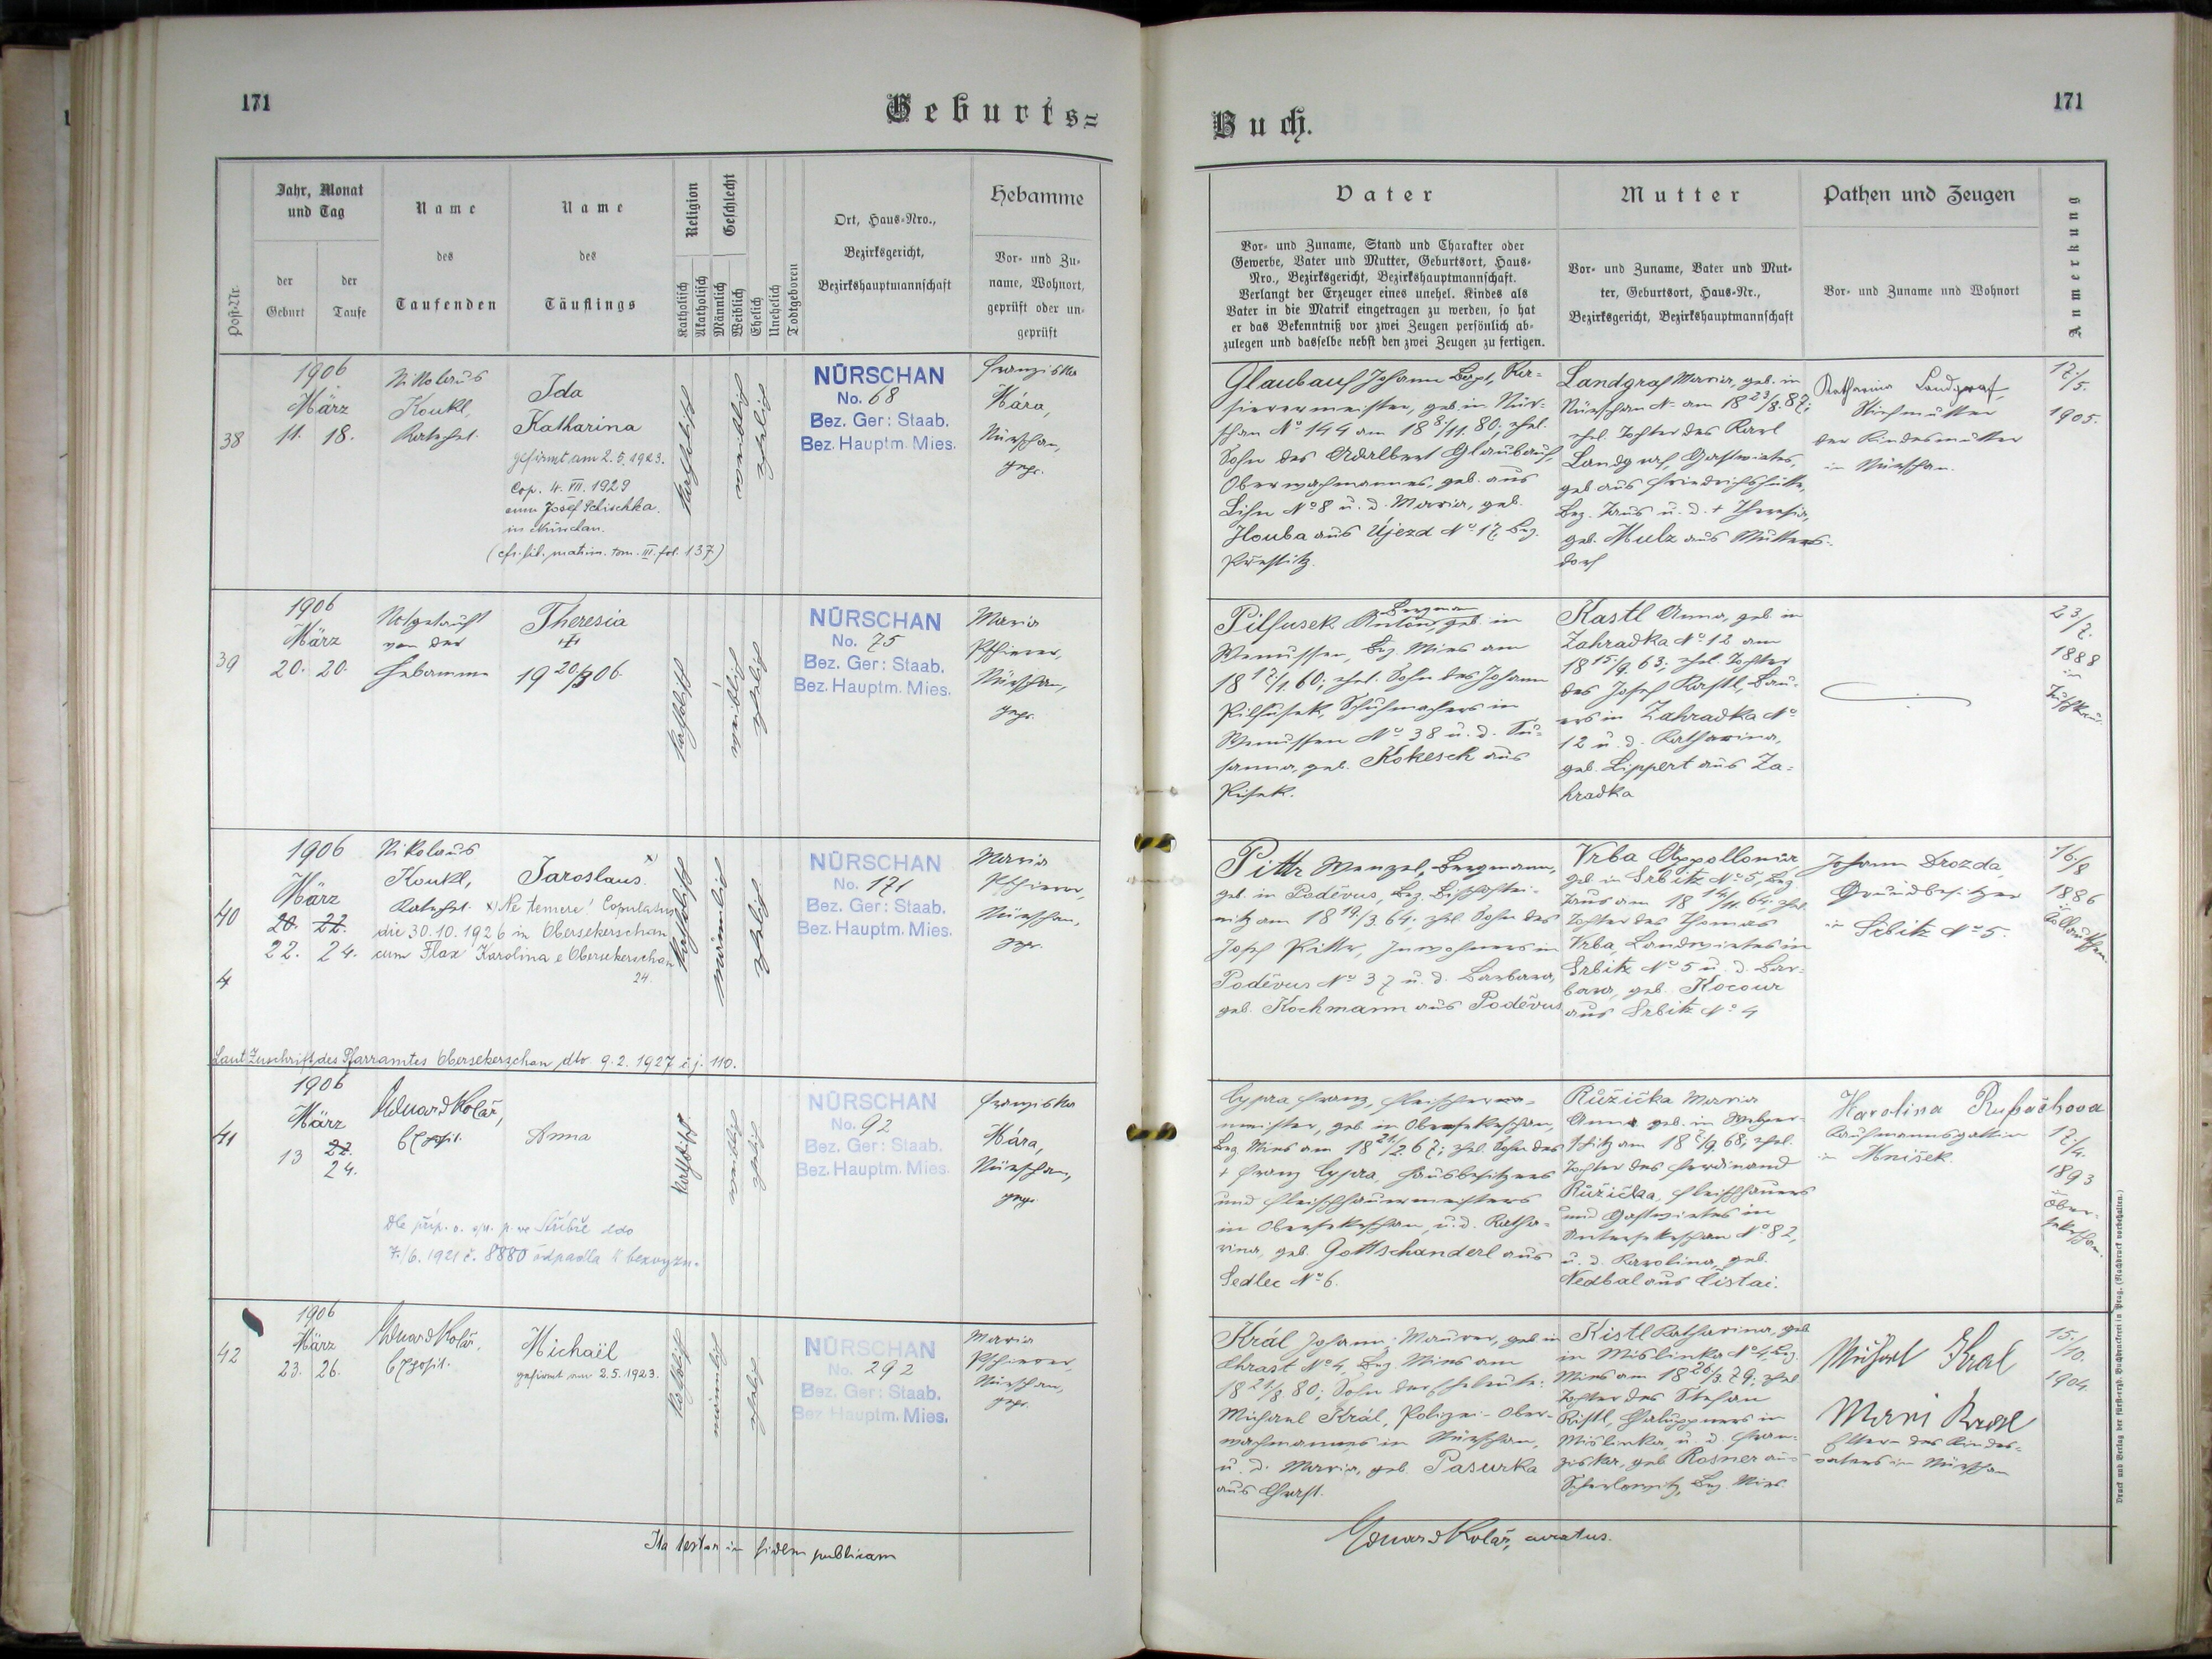 171
Geburts=
Jahr, Monat
und Tag
Post-Nr.
der
Geburt
der
Taufe
Name
des
Taufenden
Name
des
Täuflings
Religion
Katholisch
Akatholisch
Geschlecht
Männlich
Weiblich
Ehelich
Unehelich
Todtgeboren
Ort, Haus-Nro.,
Bezirksgericht,
Bezirkshauptmannschaft
Hebamme
Vor- und Zu-
name, Wohnort,
geprüft oder un-
geprüft
38
1906
März
11. 18.
Nikolaus
Koukl,
Katechet.
Ida
Katharina
gefirmt am 2.5.1923.
Cop. 4. VII. 1929
cum Josef Schischka.
in Nürschan.
(cfr. lib. matrim. tom. III. fol. 137)
katholisch
weiblich
ehelich
NÜRSCHAN
No. 68
Bez. Ger: Staab.
Bez. Hauptm. Mies.
Franziska
Hára,
Nürschan,
gepr.
39
1906
März
20. 20.
Notgetauft
von der
Hebamme
Theresia
19 20/3 06.
katholisch
weiblich
ehelich
NÜRSCHAN
No. 75
Bez. Ger: Staab.
Bez. Hauptm. Mies.
Maria
Nürschan,
gepr.
40
1906
März
20. 22.
22. 24.
4
Nikolaus
Koukl,
Katechet.
Jaroslaus. x)
x) „Ne temere" Copulatus
die 30.10.1926 in Obersekerschan
cum Flax Karolina e Obersekerschan
24.
katholisch
männlich
ehelich
NÜRSCHAN
No. 171
Bez. Ger: Staab.
Bez. Hauptm. Mies.
Maria
Nürschan,
gepr.
Laut Zuschrift des Pfarramtes Obersekerschan dto. 9.2.1927 č.j. 110.
41
1906
März
13 22.
24.
Eduard Kolář,
Exposit.
Anna
katholisch
weiblich
ehelich
NÜRSCHAN
No. 92
Bez. Ger: Staab.
Bez. Hauptm. Mies.
Franziska
Hára,
Nürschan,
gepr.
Dle příp. o. spr. p. ve Stříbře ddo
7./6. 1921 č. 8880 odpadla k bezvyzn.
42
1906
März
23. 26.
Eduard Kolář,
Exposit.
Michaël
gefirmt am 2.5.1923.
katholisch
männlich
ehelich
NÜRSCHAN
No. 292
Bez. Ger: Staab.
Bez Hauptm. Mies.
Maria
Nürschan,
gepr.
Ita testor in fidem publicam
171
Buch.
Vater
Vor- und Zuname, Stand und Charakter oder
Gewerbe, Vater und Mutter, Geburtsort, Haus-
Nro., Bezirksgericht, Bezirkshauptmannschaft.
Verlangt der Erzeuger eines unehel. Kindes als
Vater in die Matrik eingetragen zu werden, so hat
er das Bekenntniß vor zwei Zeugen persönlich ab-
zulegen und dasselbe nebst den zwei Zeugen zu fertigen.
Mutter
Vor- und Zuname, Vater und Mut-
ter, Geburtsort, Haus-Nr.,
Bezirksgericht, Bezirkshauptmannschaft
Pathen und Zeugen
Vor- und Zuname und Wohnort
Anmerkung
Glaubauf Johann
geb. in Nür-
schan No 144 am 18 8/11. 80; ehel.
Sohn des Adalbert Glaubauf,
Oberwachmannes, geb. aus
No 8 u. d. Maria, geb.
Hlouba aus Újezd No 17, Bez.
Přestitz.
Landgraf Maria, geb. in
Nürschan No am 18 23/8. 87;
ehel. Tochter des Karl
Landgraf, Gastwirtes,
geb. aus Friedrichshütte,
Bez. Taus u. d. + Theresia,
geb. Mulz aus Mutters-
dorf
Katharina Landgraf,
Stiefmutter
der Kindesmutter
in Nürschan.
17./5.
1905.
Pilfusek Anton, Bergmann, geb. in
Wenussen, Bez. Mies am
18 17/1. 60; ehel. Sohn des Johann
Pilfusek, Schuhmachers in
Wenussen No 38 u. d. Su-
sanna, geb. Kokesch aus
Pisek.
Kastl Anna, geb. in
Zahradka No 12 am
18 15/9. 63; ehel. Tochter
des Josef Kastl, Bau-
ers in Zahradka No
12 u. d. Katharina,
geb. Lippert aus Za-
hradka
23/7.
1888
in
Tuschkau.
Pittr Wenzel, Bergmann,
geb. in Poděvus, Bez. Bischoftei-
nitz am 18 19/3. 64; ehel. Sohn des
Josef Pittr, Inwohners in
Poděvus No 37 u. d. Barbara,
geb. Kochmann aus Poděvus
Vrba Appollonia
geb. in Srbitz No 5, Bez.
Taus am 18 14/11. 64; ehel.
Tochter des Thomas
Vrba, Landwirtes in
Srbitz No 5 u. d. Bar-
bara, geb. Kocour
aus Srbitz No 4
Johann Drozda,
Grundbesitzer
in Srbitz No 5.
16./8
1886
in
Cypra Franz, Fleischer-
meister, geb. in Obersekerschan,
Bez. Mies am 18 21/2. 67; ehel. Sohn des
+ Franz Cypra, Hausbesitzers
und Fleischhauermeisters
in Obersekerschan, u. d. Katha-
rina, geb. Gottschanderl aus
Sedlec No 6.
Růžička Maria
Anna geb. in
am 18 7/9. 68; ehel.
Tochter des Ferdinand
Růžička, Fleischhauers
und Gastwirtes in
Untersekerschan No 82,
u. d. Karolina, geb.
Nedbal aus Čistai.
Karolina
Kaufmannsgattin
in Mníšek.
17./4.
1893
Ober-
sekerschan.
Král Johann, Maurer, geb. in
Chrast No 4, Bez. Mies am
18 21/8. 80; Sohn der Eheleute:
Michael Král, Polizei-Ober-
wachmannes in Nürschan,
u. d. Maria, geb. Pasurka
aus Chrast.
Kistl Katharina, geb.
in Mislinka No 4, Bez.
Mies am 18 26/3. 79; ehel.
Tochter des Stefan
Kistl, Chaluppners in
Mislinka, u. d. Fran-
ziska, geb. Rosner aus
Bez. Mies
Michael Kral
Mari Kral
Eltern des Kindes-
vaters in Nürschan
15./10.
1904.
Eduard Kolář, curatus.
Druck und Verlag der fürst-erzb. Buchdruckerei in Prag. (Nachdruck vorbehalten.)